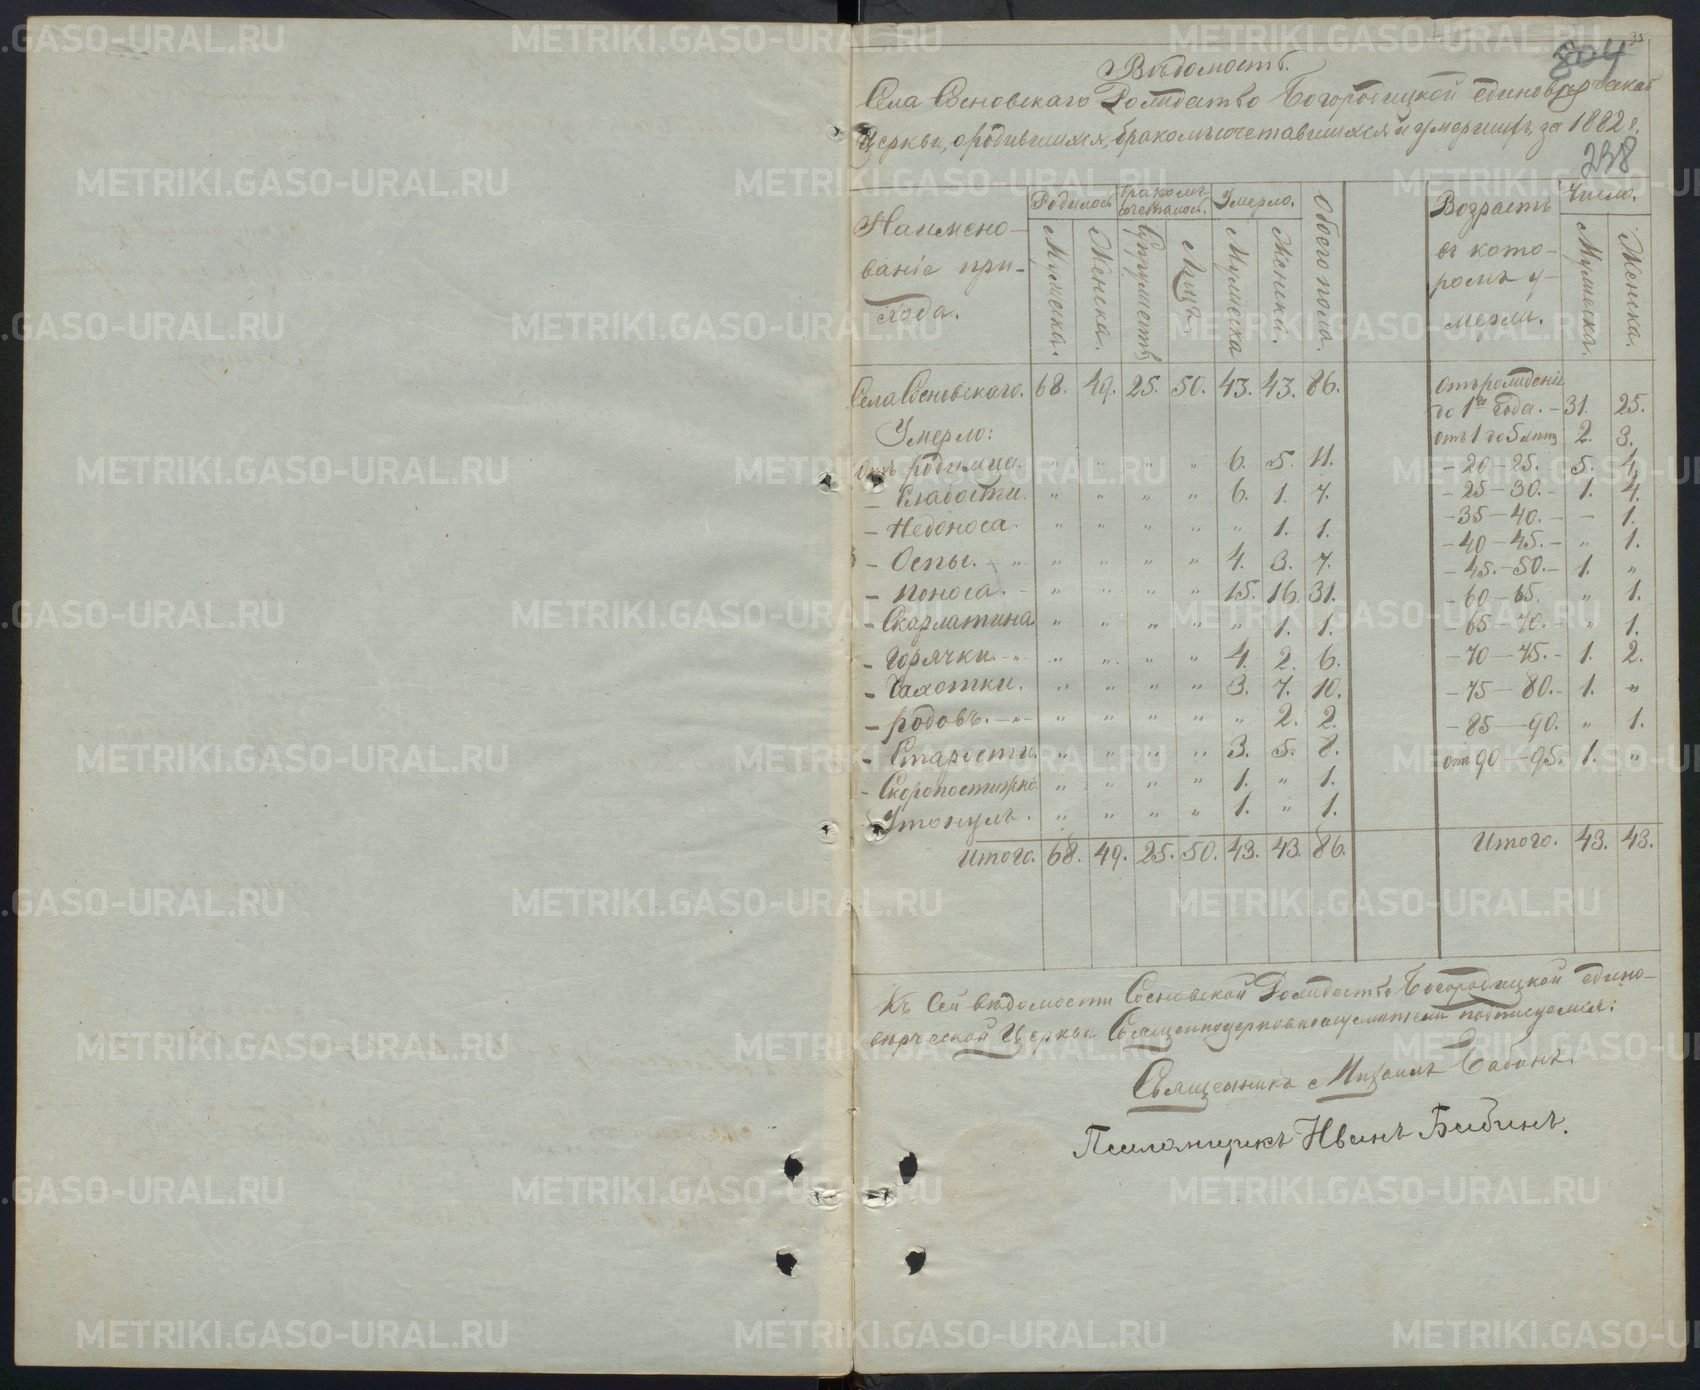 33
804
Вѣдомость.
Села Сосновскаго Рождество Богородицкой единовѣрческой
Церкви, о родившихся, бракомъ сочетавшихся и умершихъ, за 1882 г.
238
Наимено-
ваніе при-
хода.
Родилось
Бракомъ сочеталось.
Умерло.
Обоего пола.
Мужеска.
Женска.
Супружествъ
Лицъ.
Мужеска
Женска.
Возрастъ
въ кото-
ромъ у-
мерли.
Число.
Мужеска.
Женска.
Села Сосновскаго. 68. 49. 25. 50. 43. 43. 86.
Умерло:
Отъ родимца. " " " " 6. 5. 11.
- Слабости. " " " " 6. 1. 7.
- Недоноса. " " " " " 1. 1.
- Оспы. - " " " " " 4. 3. 7.
- Поноса. - " " " " 15. 16. 31.
- Скарлатина " " " " " 1. 1.
- Горячки. - " - " " " " 4. 2. 6.
- Чахотки. " " " " 3. 7. 10.
- родовъ. - " - " " " " " 2. 2.
- Старости. " " " " 3. 5. 8.
- Скоропостижно " " " " 1. " 1.
Утонулъ. " " " " 1. " 1.
Итого. 68. 49. 25. 50. 43. 43. 86.
Отъ рожденія
до 1го года. - 31. 25.
отъ 1 до 5 лѣтъ 2. 3.
- 20 - 25. - 5. 4.
- 25 - 30. - 1. 4.
- 35 - 40. - - 1.
- 40 - 45. - " 1.
- 45. - 50. - 1. "
- 60 - 65. " 1.
- 65 - 70. - " 1.
- 70 - 75. - 1. 2.
- 75 - 80. - 1. "
- 85 - 90. " 1.
отъ 90 - 95. 1. "
Итого. 43. 43.
Къ сей вѣдомости Сосновской Рождество Богородицкой едино-
вѣрческой Церкви Священноцерковнослужители подписуемся:
Священникъ Михаилъ Бабинъ.
Псаломщикъ Иванъ Бабинъ.
METRIKI.GASO-URAL.RU